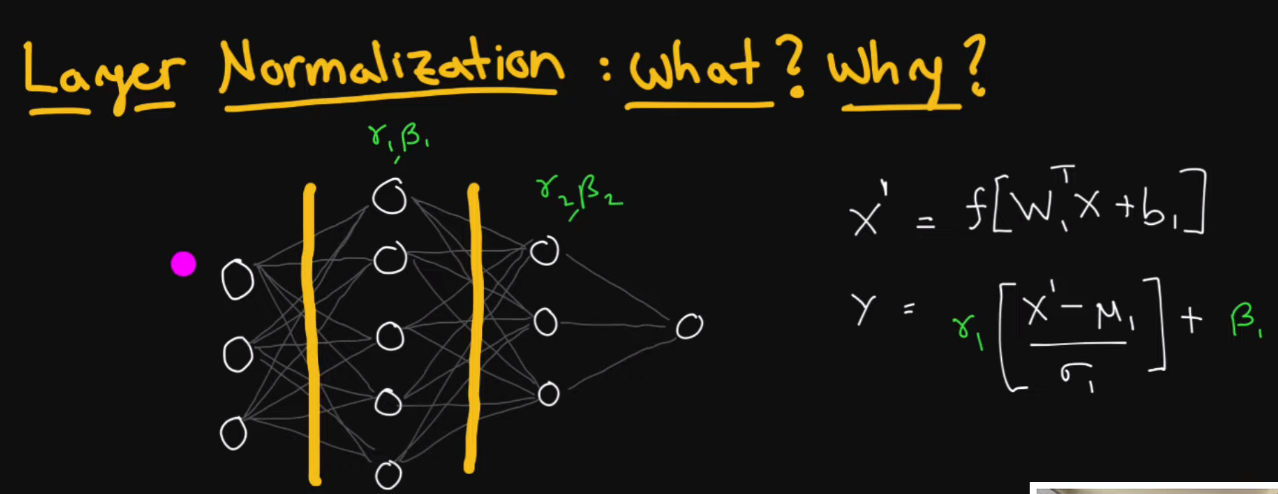 Layer Normalization : What? Why?
γ₁,β₁
γ₂,β₂
X' = f[W₁ᵀX + b₁]
Y = γ₁[(X' - μ₁)/σ₁] + β₁